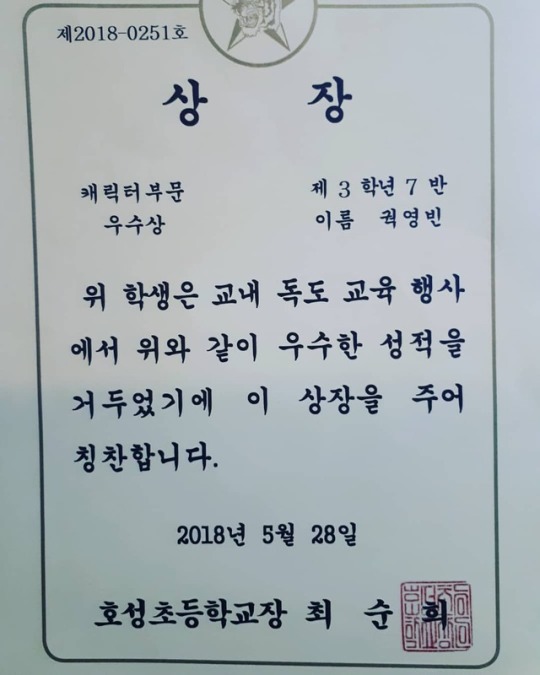 제2018-0251호
상 장
캐릭터부문 제 3 학년 7 반
우수상 이름 궉영빈
위 학생은 교내 독도 교육 행사
에서 위와 같이 우수한 성적을
거두었기에 이 상장을 주어
칭찬합니다.
2018년 5월 28일
호성초등학교장 최 순 희